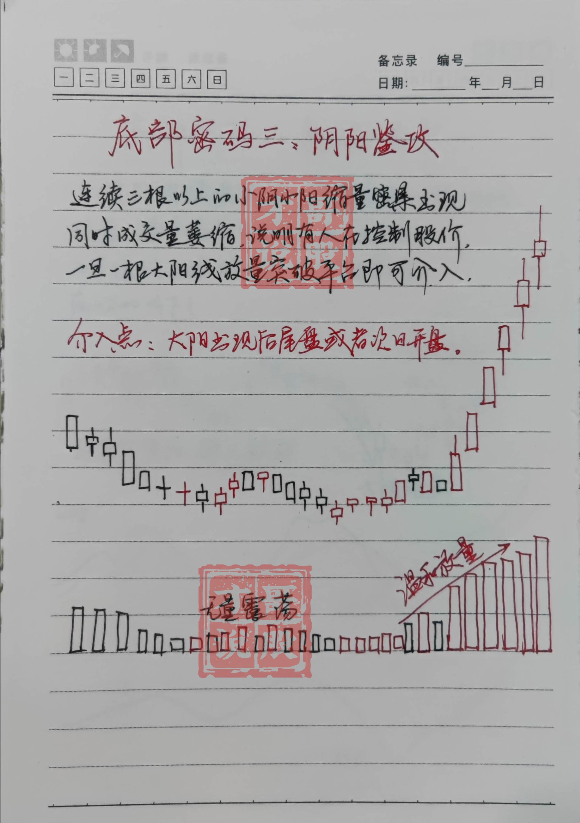 备忘录 编号
一 二 三 四 五 六 日
日期: 年 月 日
底部密码三：阴阳鉴政
连续三根以上的小阴小阳缩量 出现
同时成交量萎缩,说明有人在控制股价,
一旦一根大阳线放量突破平台即可介入.
介入点：大阳出现后尾盘或者次日开盘。
温和放量
无量震荡